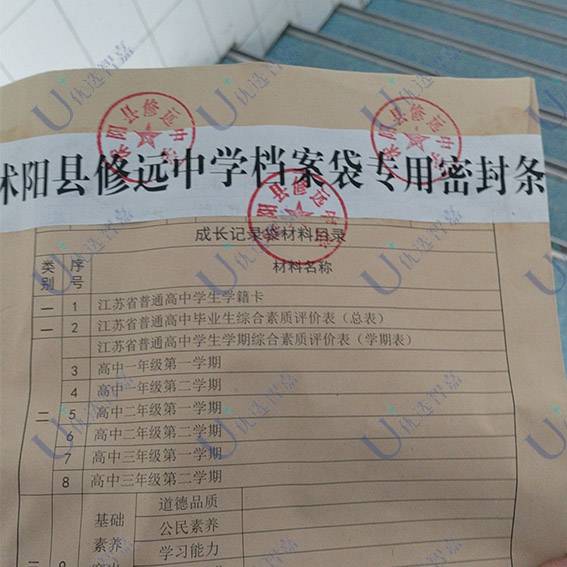 沭阳县修远中学档案袋专用密封条
成长记录袋材料目录
类别 序号 材料名称
一 1 江苏省普通高中学生学籍卡
一 2 江苏省普通高中毕业生综合素质评价表（总表）
江苏省普通高中学生学期综合素质评价表（学期表）
3 高中一年级第一学期
4 高中一年级第二学期
二 5 高中二年级第一学期
6 高中二年级第二学期
7 高中三年级第一学期
8 高中三年级第二学期
基础 道德品质
素养 公民素养
学习能力
U优选智嘉